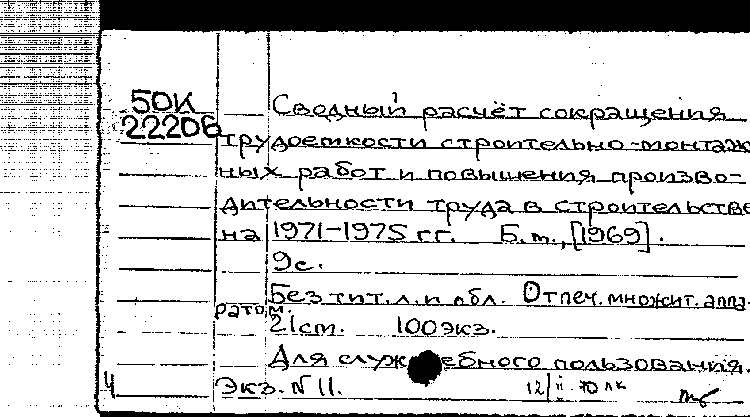 50К
22206
Сводный расчёт сокращения
трудоемкости строительно-монтаж
ных работ и повышения произво-
дительности труда в строительстве
на 1971-1975 гг. Б.м., [1969].
9с.
Без тит. л. и обл. Отпеч. множит. аппа-
ратом.
21см. 100экз.
Для служебного пользования.
Ч Экз. N 11. 12/II-70 лк